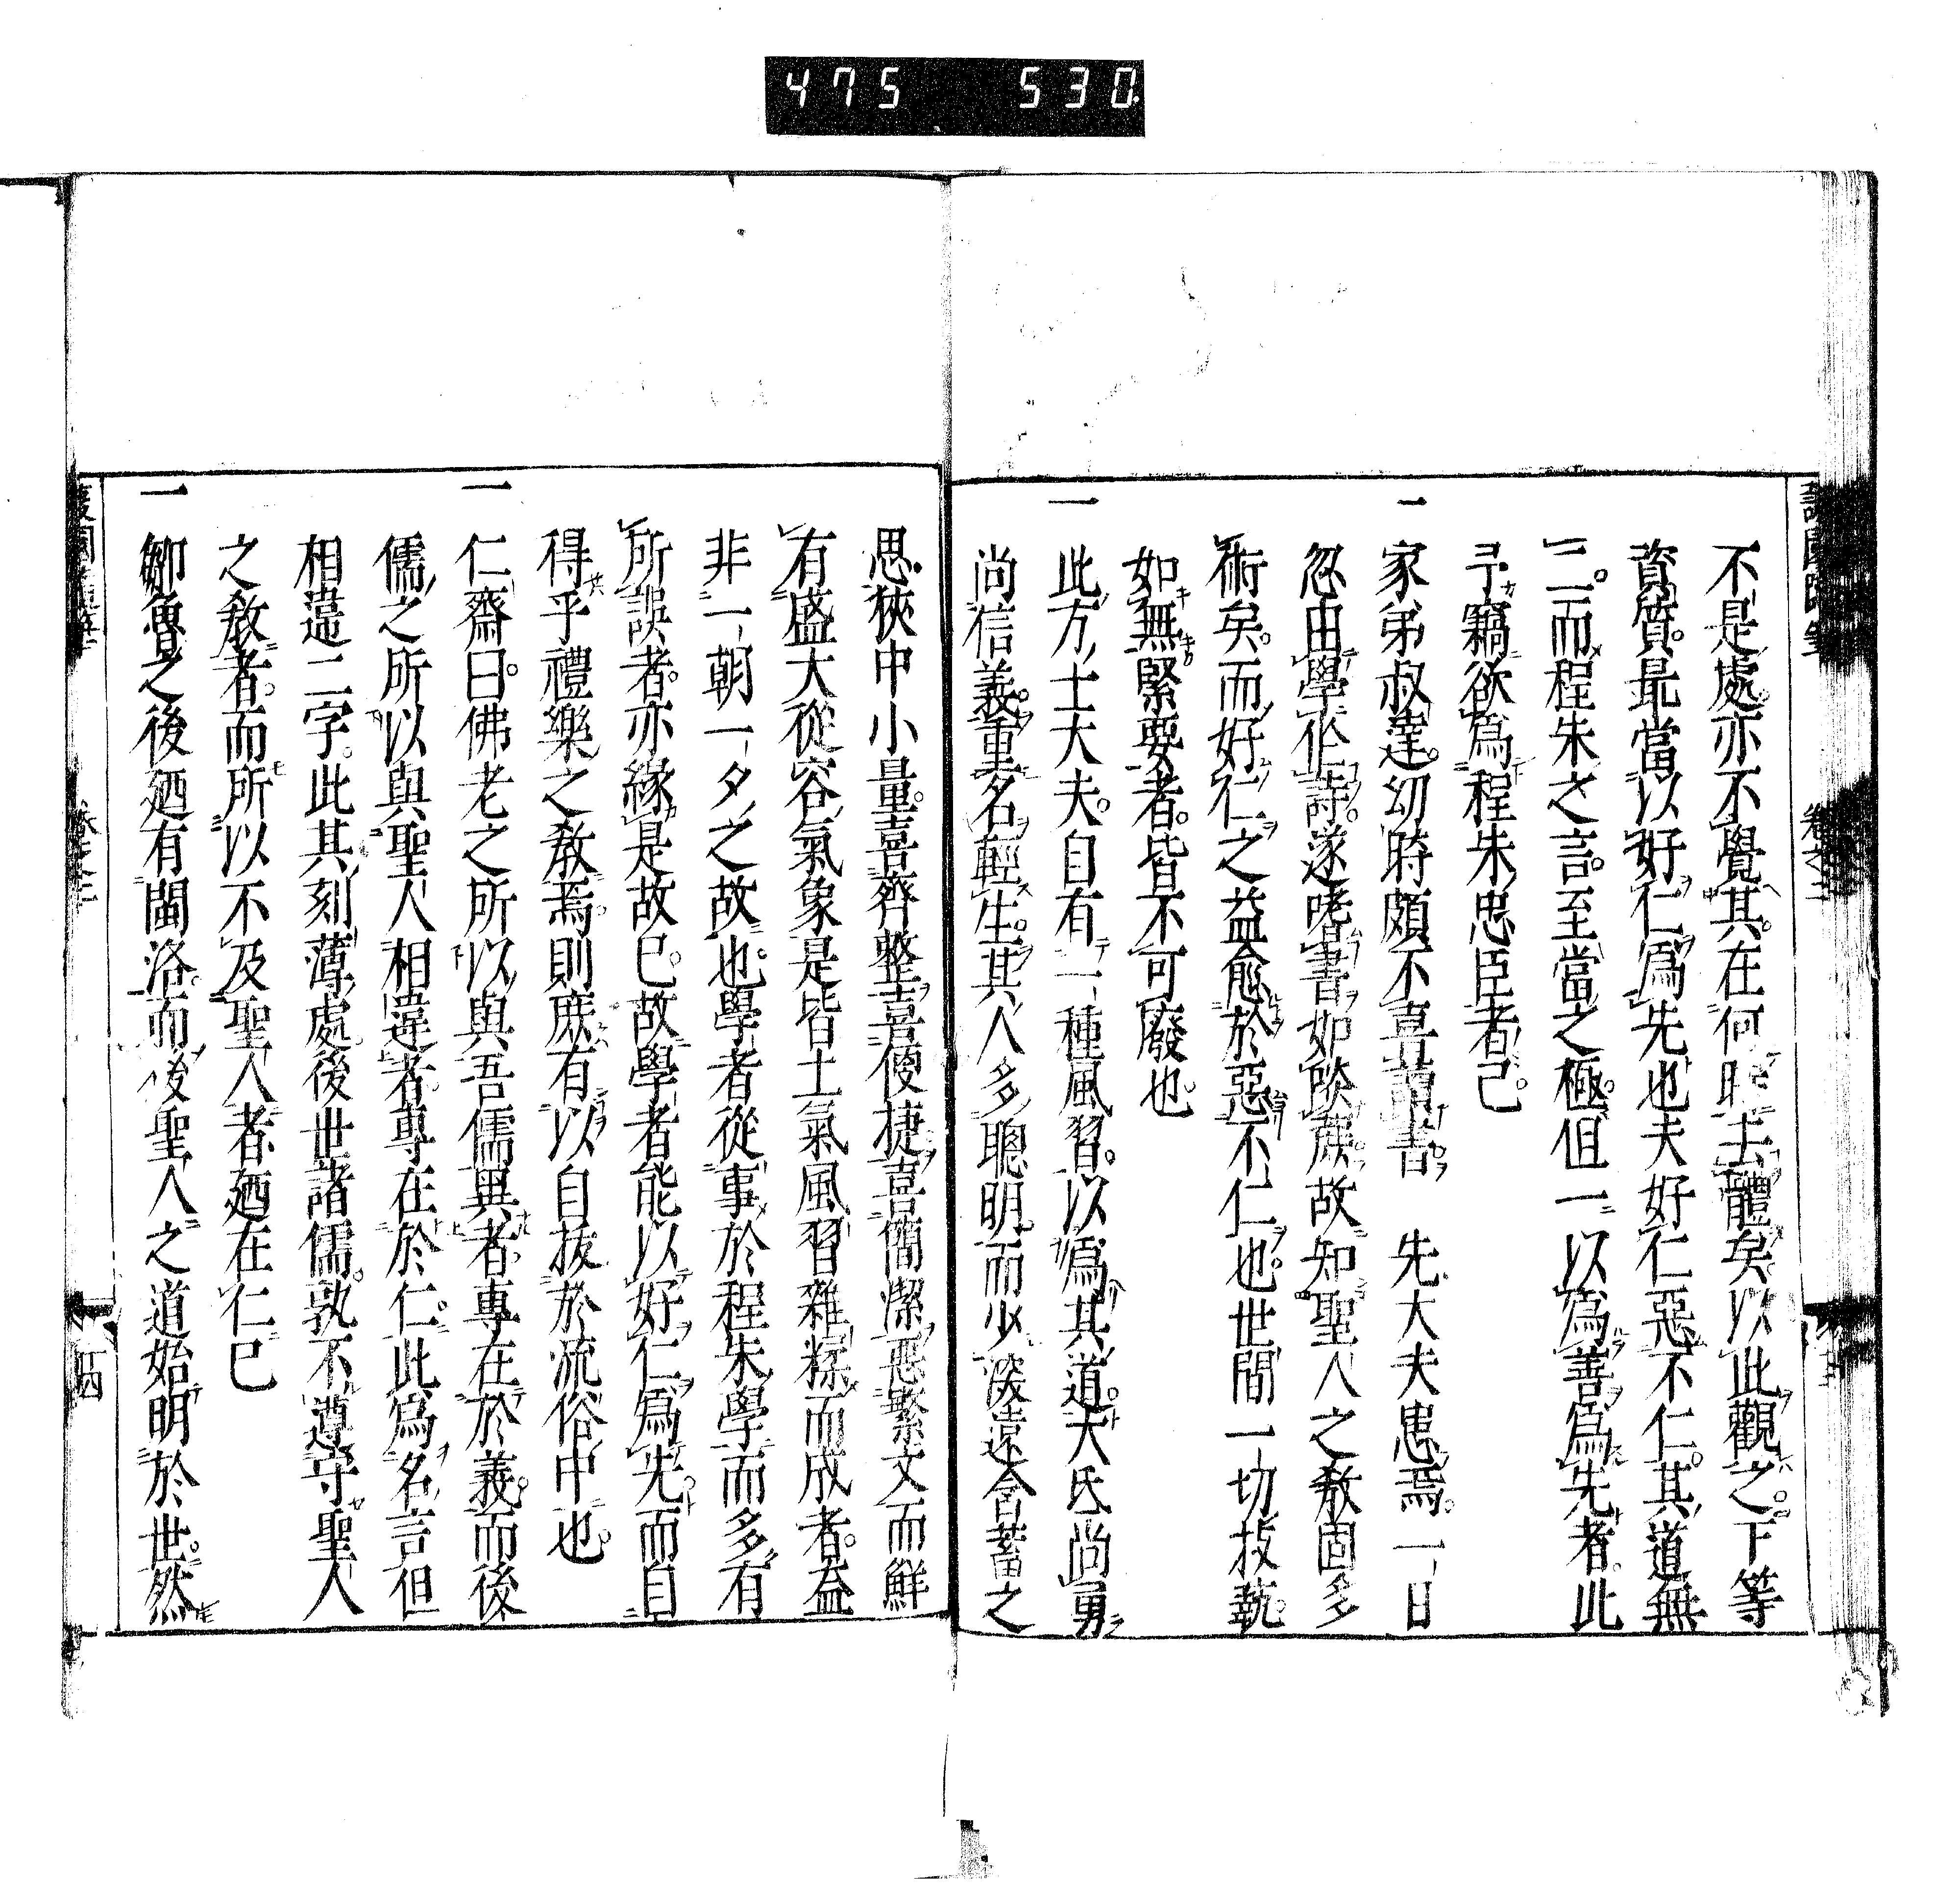 475 530
不是處亦不覺其在何時去體矣以此觀之下等
資質最當以好仁爲先也夫好仁惡不仁其道無
二而程朱之言至當之極但一以爲善爲先者此
予竊欲爲程朱忠臣者已
一 家弟叔達幼時頗不喜讀書 先大夫患焉一日
忽由學作詩遂嗜書如啖蔗故知聖人之教固多
術矣而好仁之益愈於惡不仁也世間一切技藝
如無緊要者皆不可廢也
一 此方士大夫自有一種風習以爲其道大氐尚勇
尚信義重名輕生其人多聰明而少深遠含蓄之
思狹中小量喜齊整喜便捷喜簡潔惡繁文而鮮
有盛大從容氣象是皆土氣風習雜糅而成者益
非一朝一夕之故也學者從事於程朱學而多有
所誤者亦緣是故已故學者能以好仁爲先而自
得乎禮樂之教焉則庶有以自拔於流俗中也
一 仁齋曰佛老之所以與吾儒異者專在於義而後
儒之所以與聖人相違者專在於仁此爲名言但
相違二字此其刻薄處後世諸儒孰不遵守聖人
之教者而所以不及聖人者廼在仁已
一 鄒魯之後廼有閩洛而後聖人之道始明於世然
四